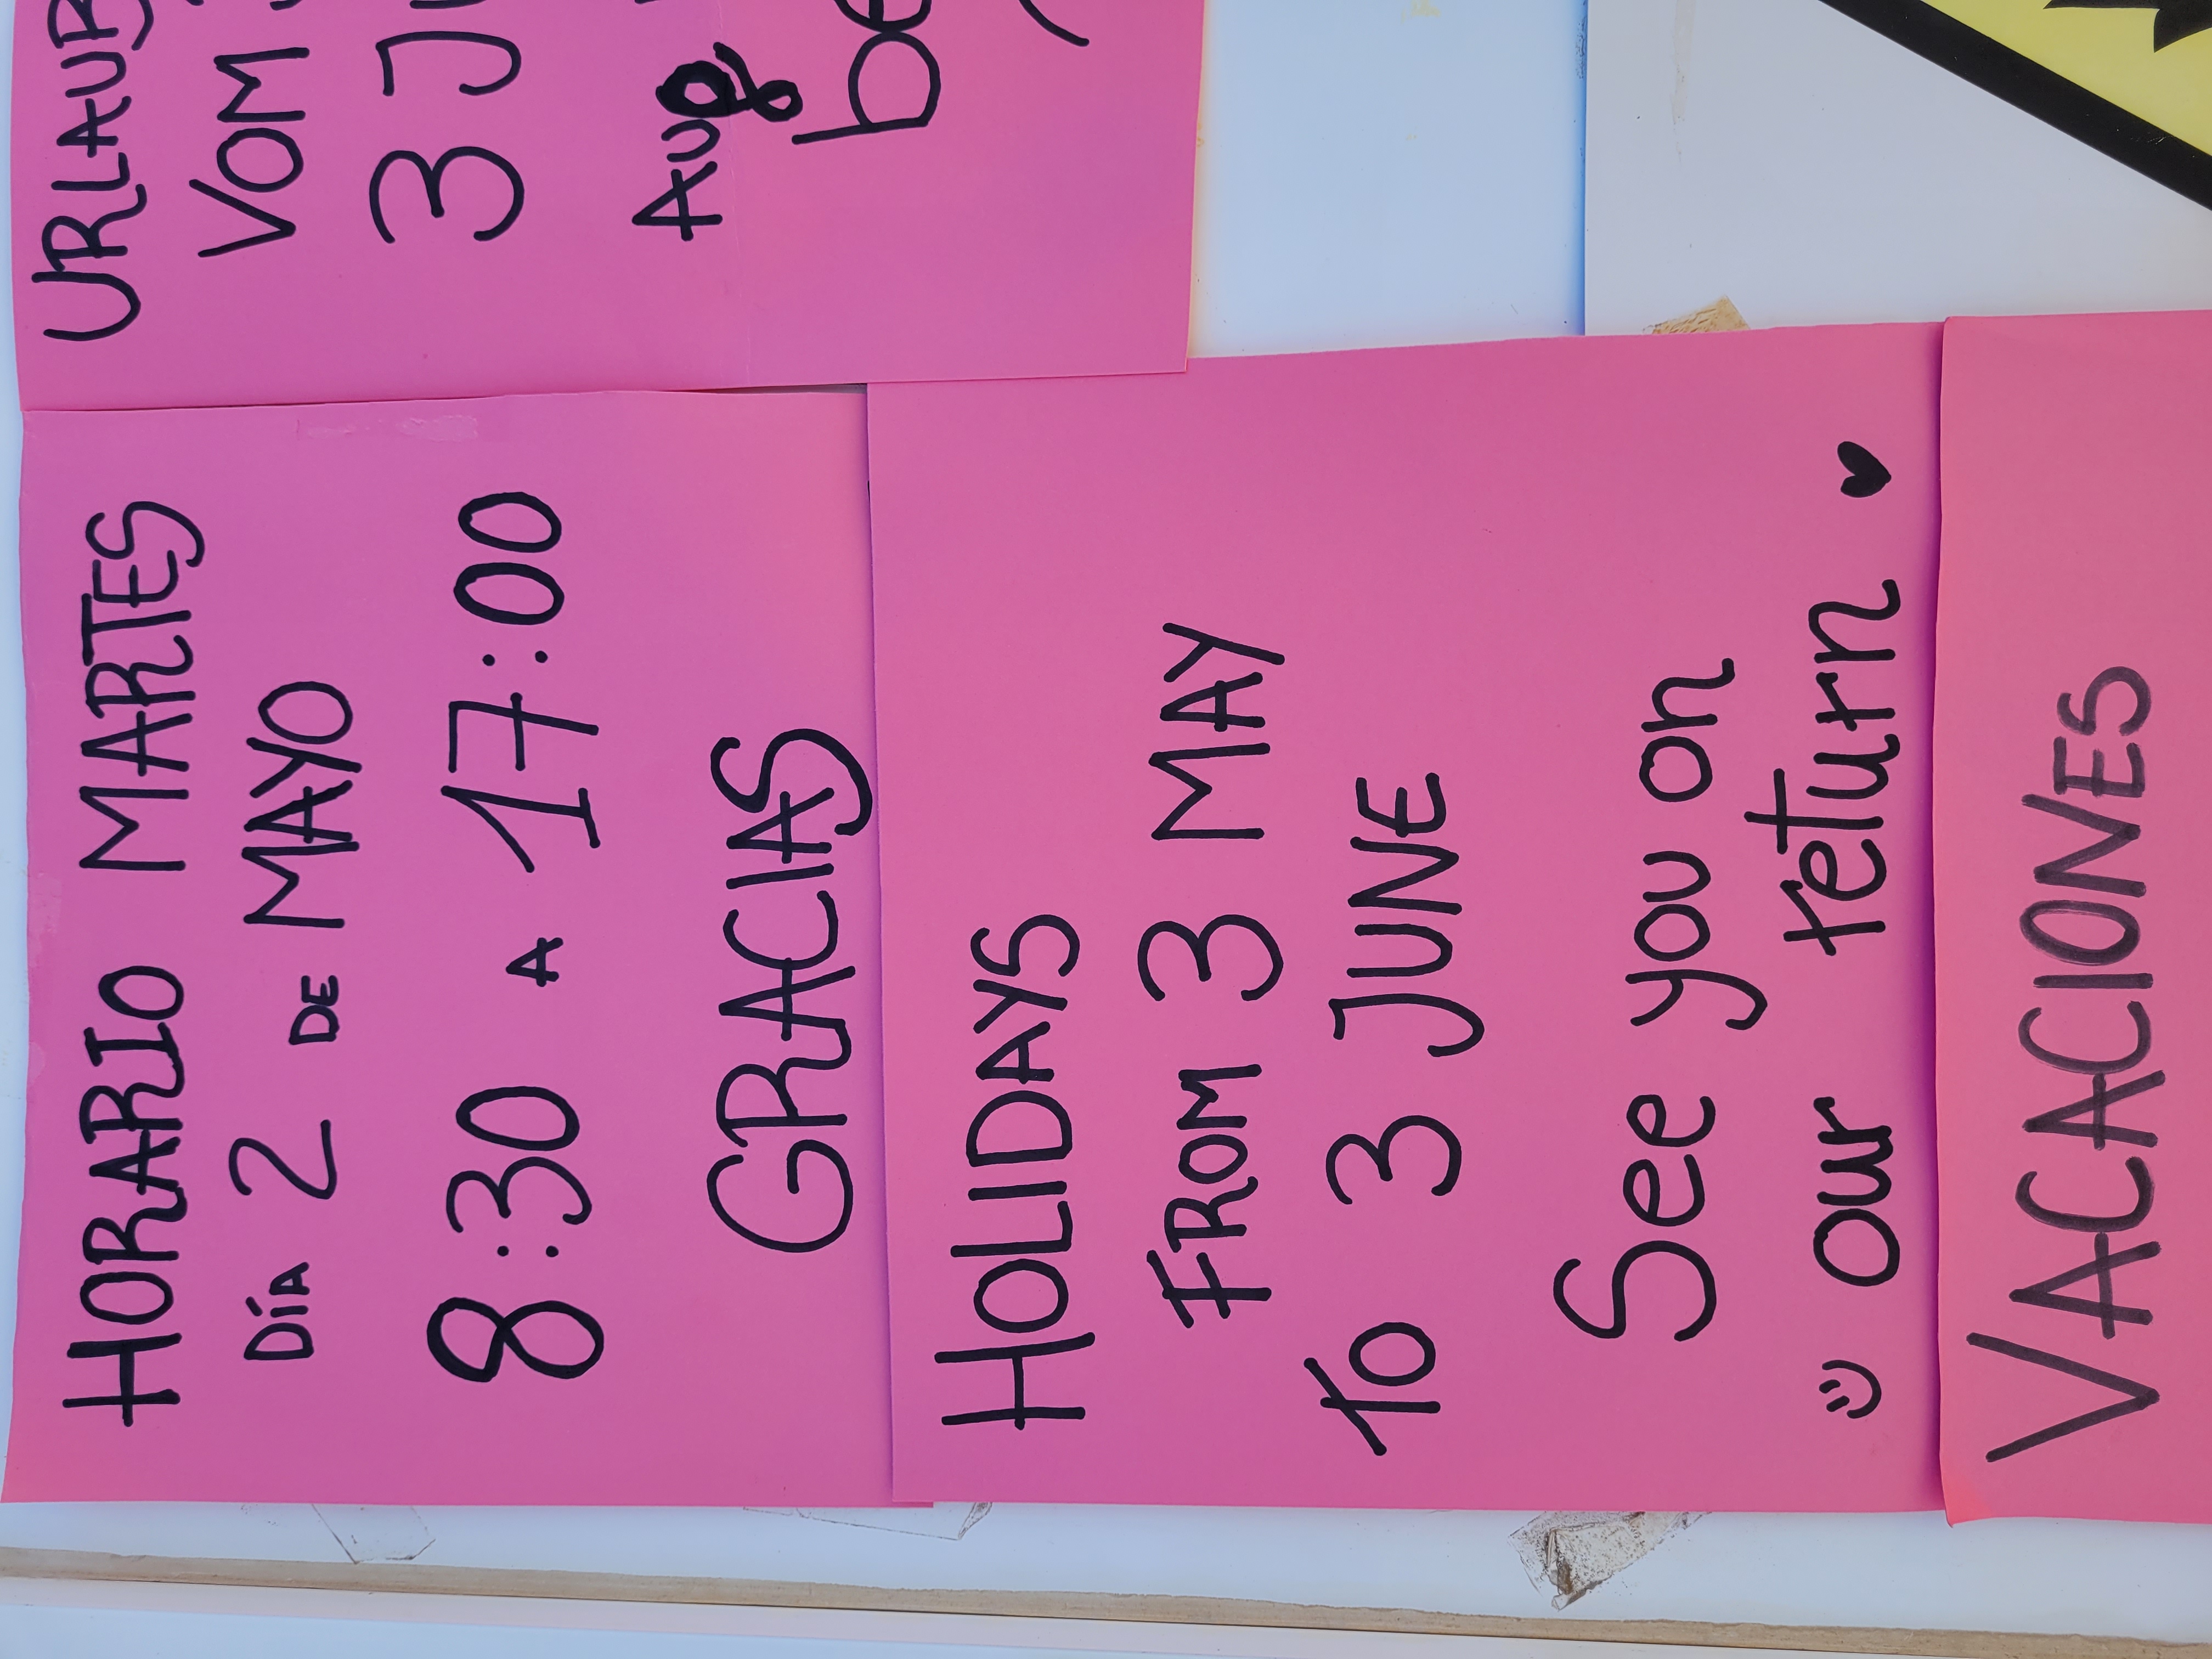 HORARIO MARTES
DÍA 2 DE MAYO
8:30 A 17:00
GRACIAS
URLAUB
VOM
3 JU
AUG
be
HOLIDAYS
FROM 3 MAY
to 3 JUNE
See you on
our return
VACACIONES